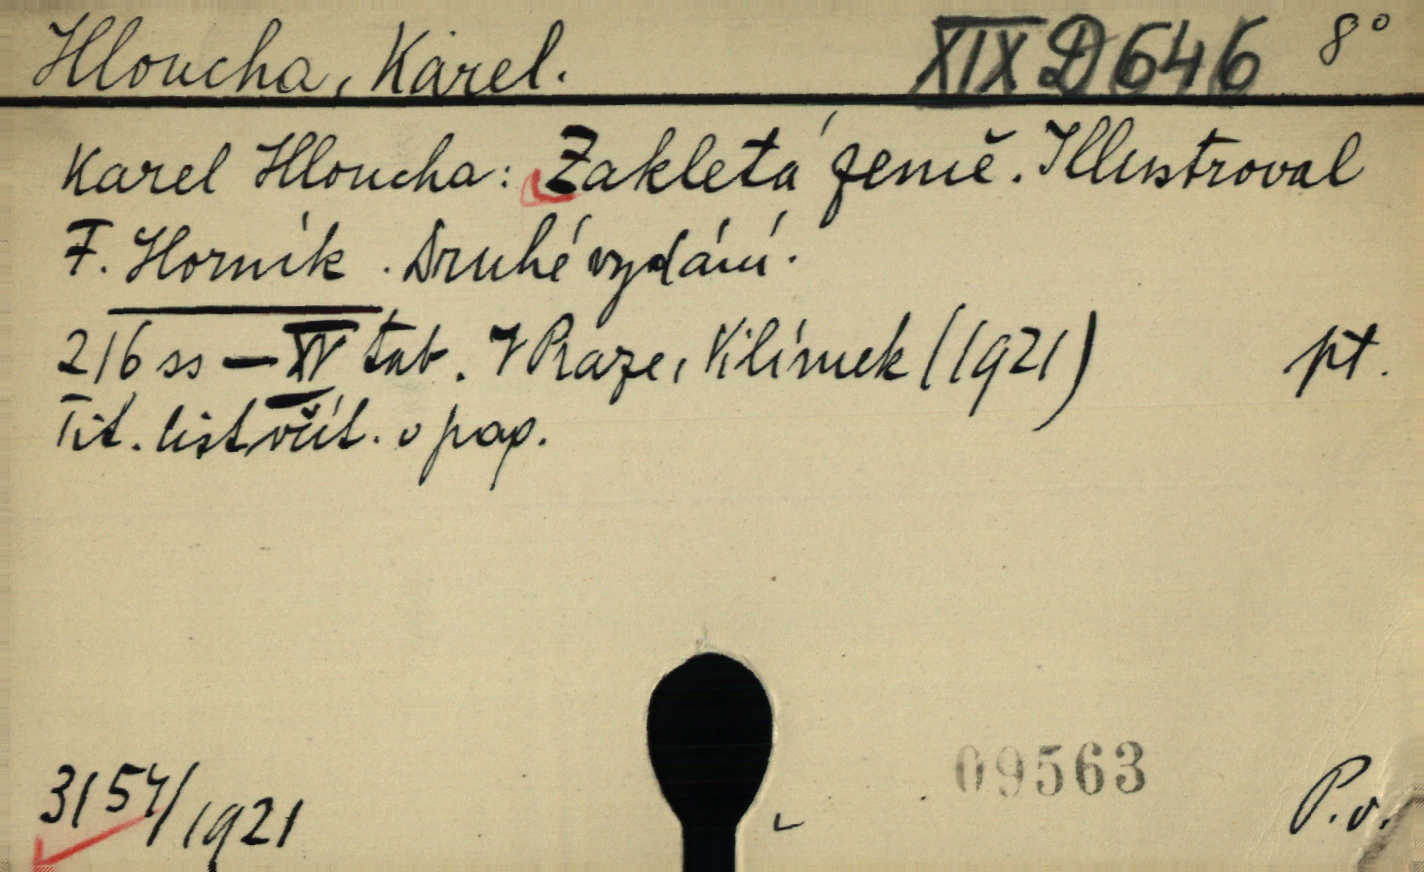 Hloucha, Karel. XIX D 646 8°
Karel Hloucha: Zakletá země. Illustroval
F. Horník. Druhé vydání.
216 ss — XV tab. V Praze, Vilímek (1921) pt.
Tit. list včít. v pag.
3154/1921
09563
P.v.